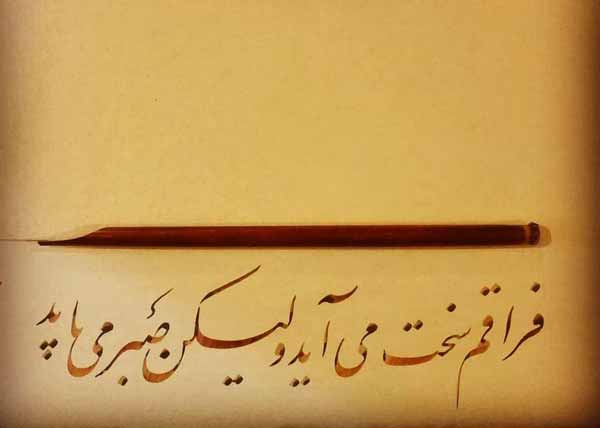 فراقم سخت می آید ولیکن صبر می باید